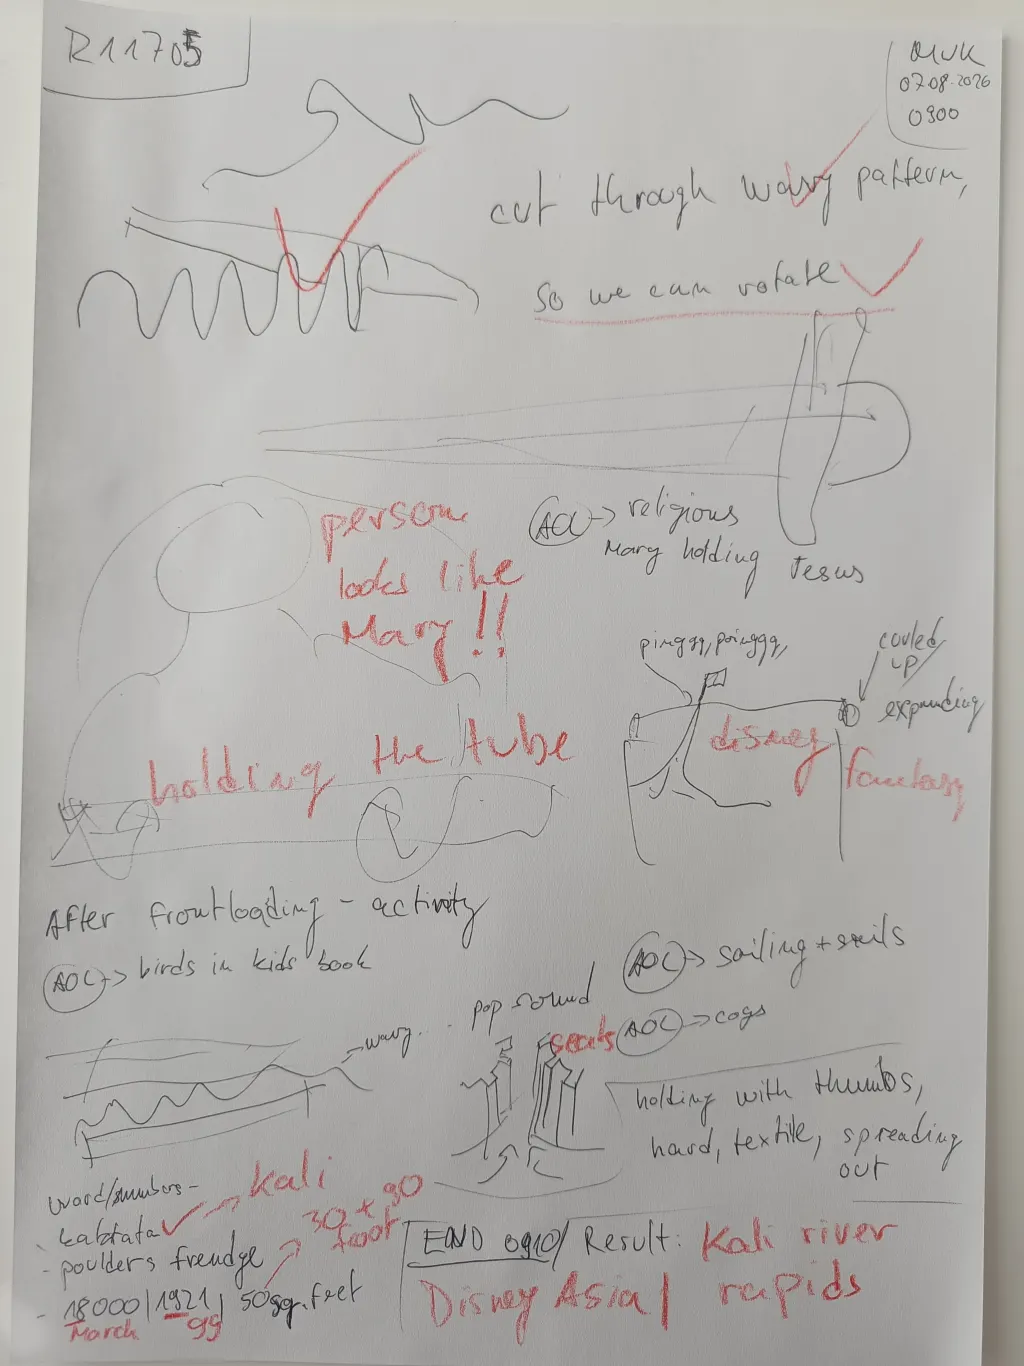 R11705
MVK
07.08.2026
0900
cut through wavy pattern,
so we can rotate
AOL -> religious
Mary holding Jesus
person
looks like
Mary!!
pinggg, poinggg,
couled
up
expanding
disney
fantasy
holding the tube
After frontloading - activity
AOL -> birds in kids book
AOL -> sailing + sails
AOL -> cogs
pop sound
seats
wavy..
holding with thumbs,
hard, textile, spreading
out
word/numbers -
kabtata -> Kali
- poulders frendge
30 * 90
foot
- 18000 | 1921 | 50sq. feet
March 99
END 0910 / Result: Kali river
Disney Asia / rapids